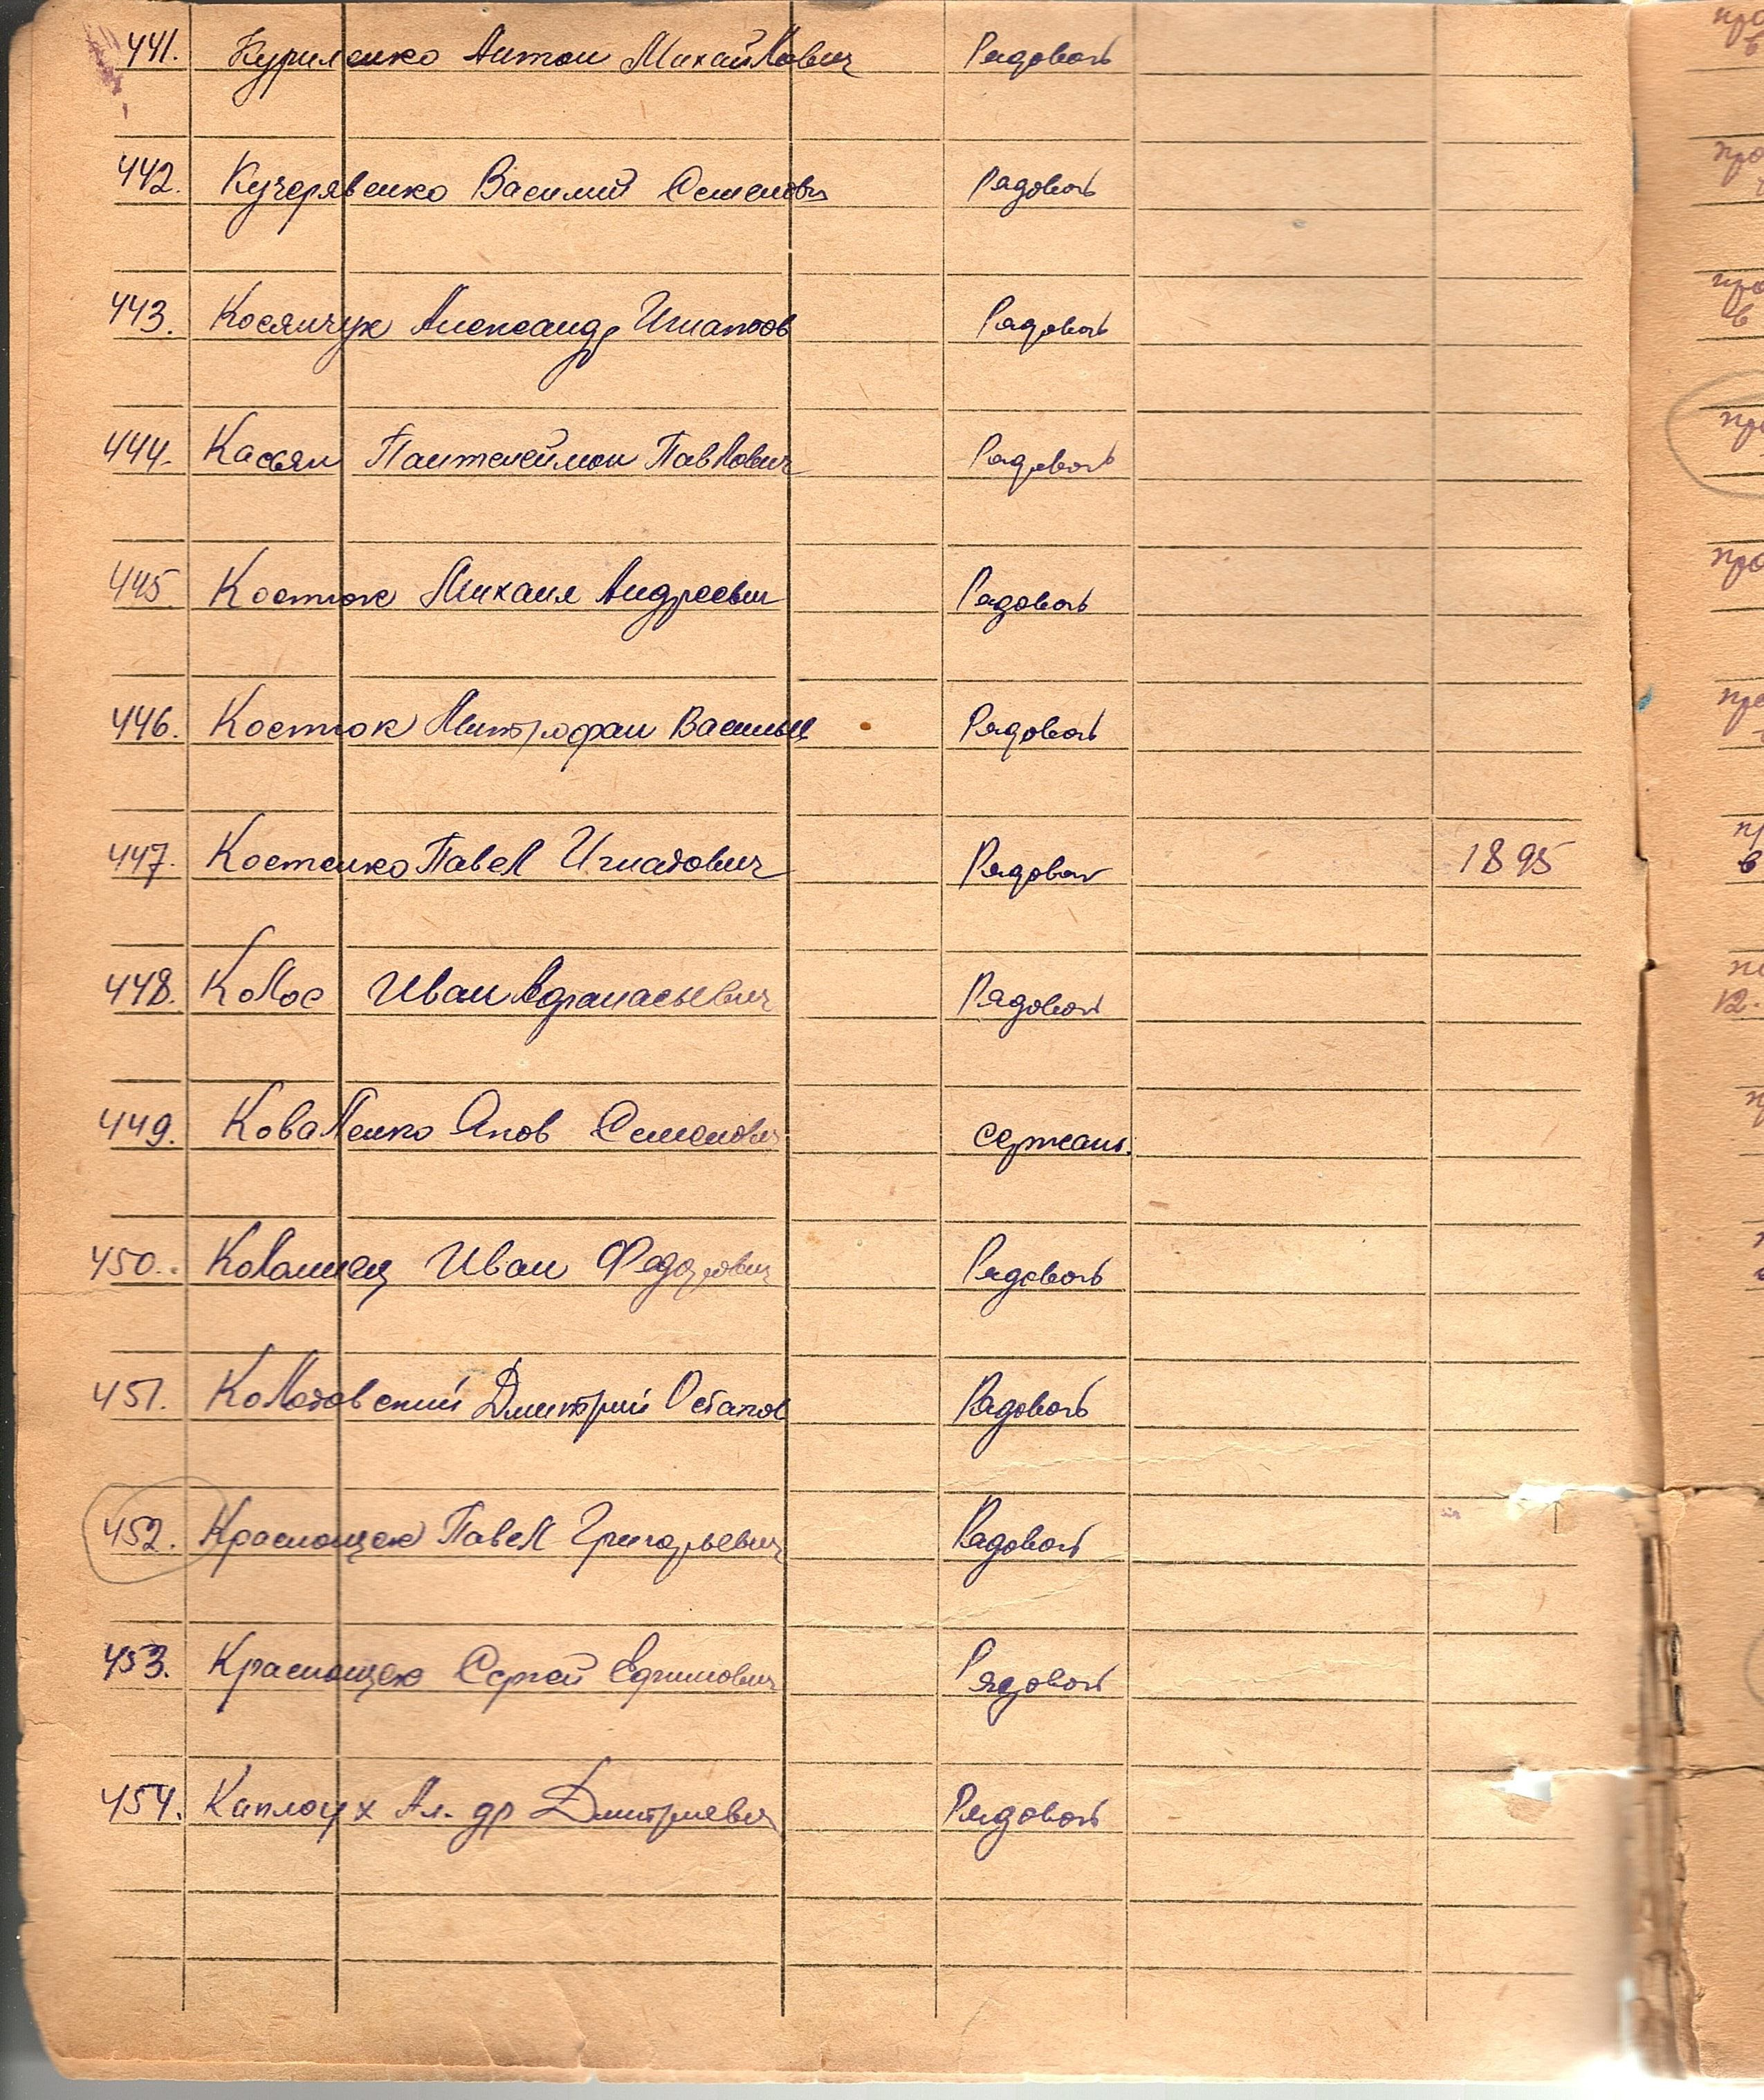 441. Куриленко Антон Михайлович Рядовой
442. Кучерявенко Василий Семенович Рядовой
443. Косянчук Александр Игнатов Рядовой
444. Касьян Пантелеймон Павлович Рядовой
445. Костюк Михаил Андреевич Рядовой
446. Костюк Митрофан Василье Рядовой
447. Костенко Павел Игнатович Рядовой 1895
448. Колос Иван Афанасьевич Рядовой
449. Коваленко Яков Семенович Сержант.
450. Коломиец Иван Федорович Рядовой
451. Колотовский Дмитрий Остапов Рядовой
452. Краснощек Павел Григорьевич Рядовой
453. Краснощек Сергей Ефимович Рядовой
454. Каплоух Ал-др Дмитриевич Рядовой